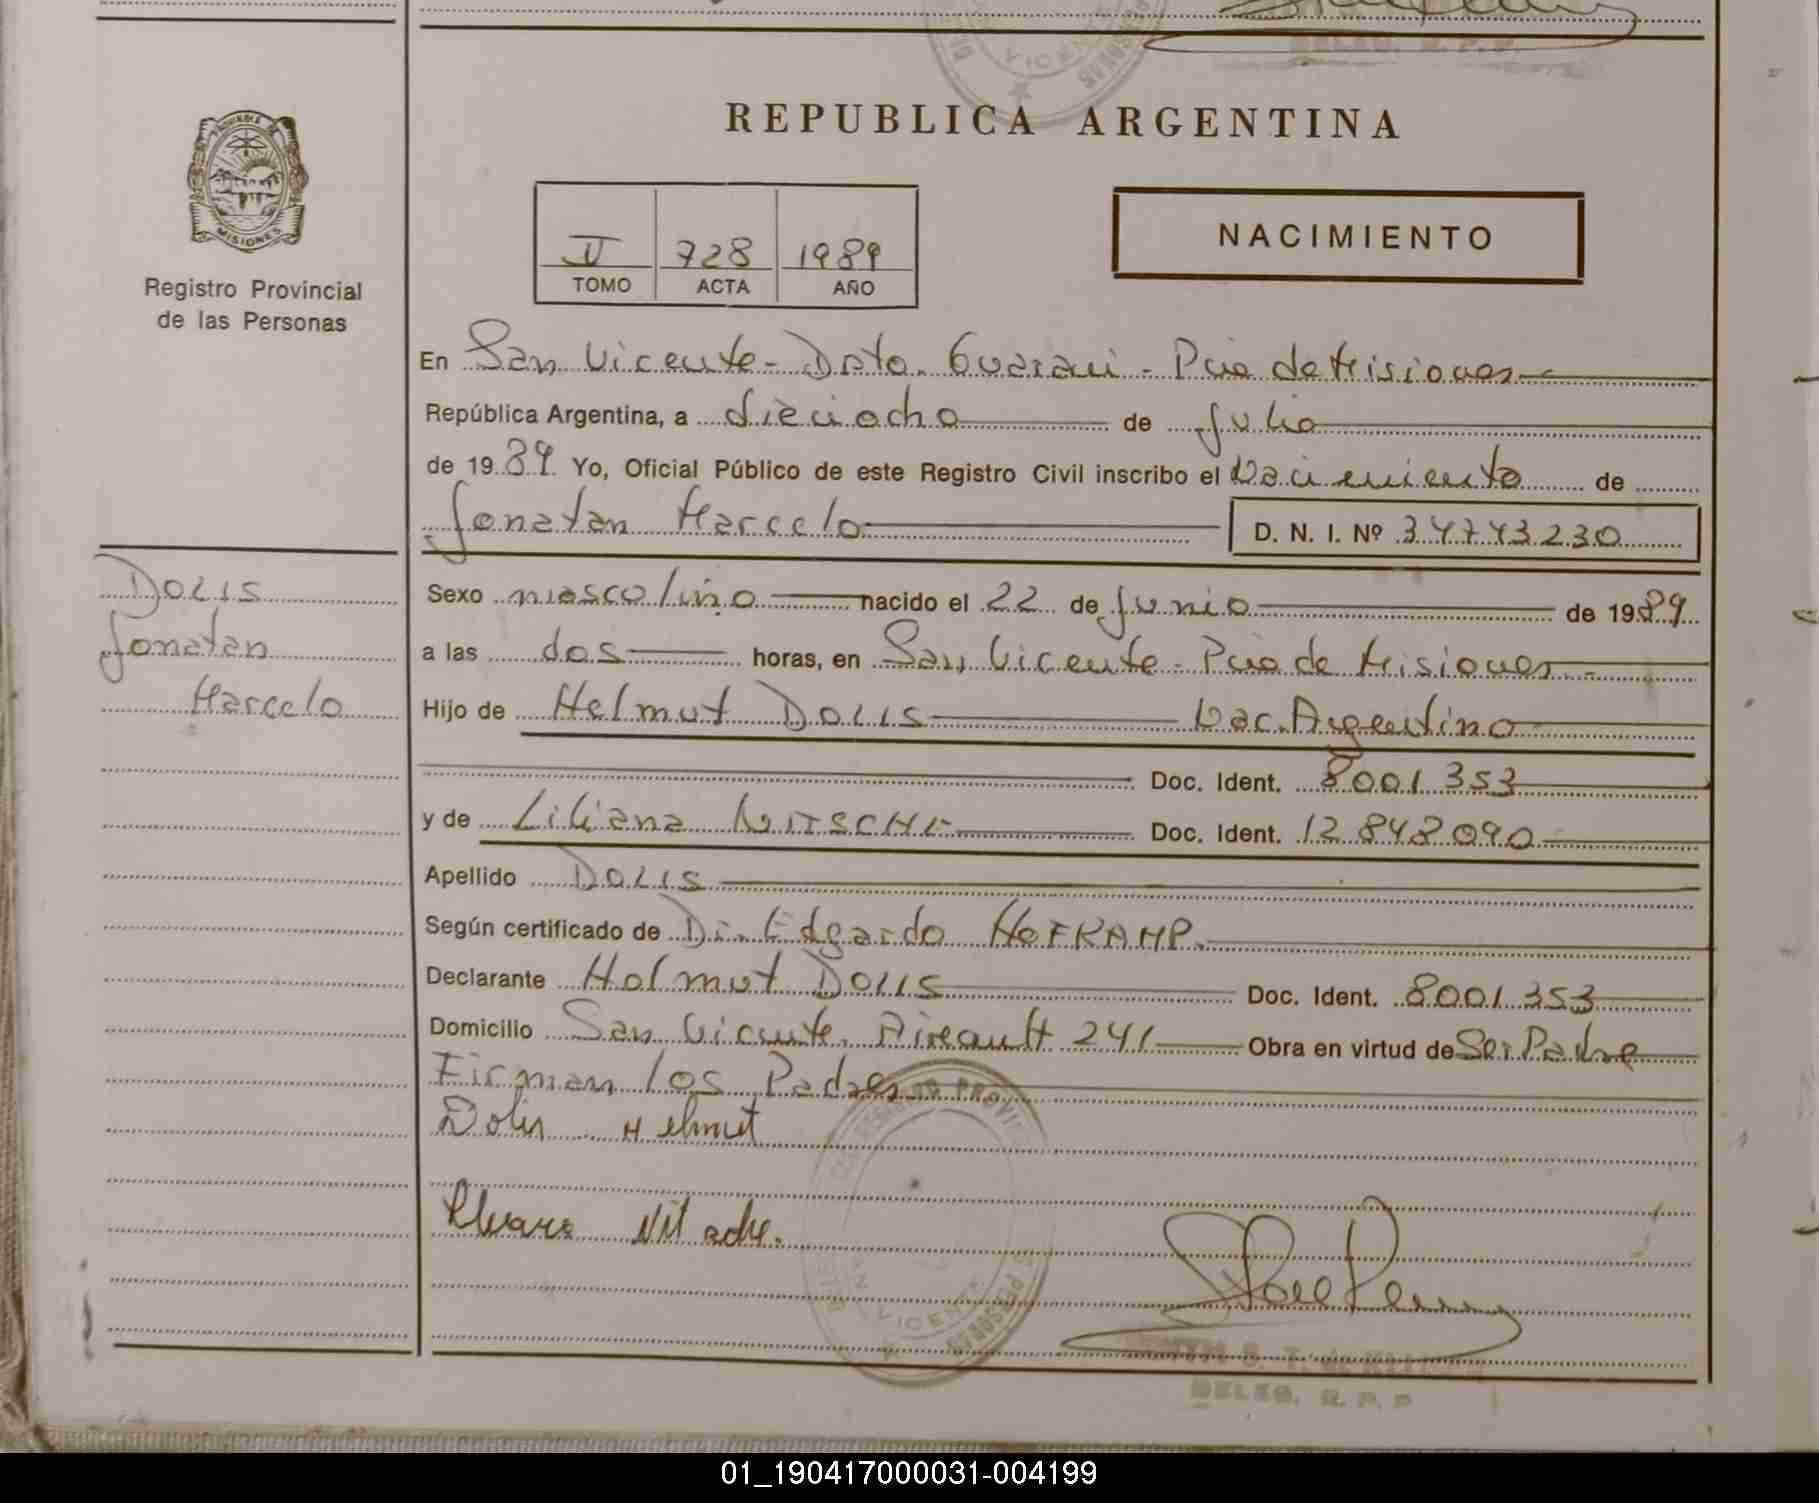 REPUBLICA ARGENTINA
MISIONES
Registro Provincial
de las Personas
II 728 1989
TOMO ACTA AÑO
NACIMIENTO
En San Vicente - Dpto. Guarani - Pcia de Misiones
República Argentina, a dieciocho de Julio
de 1989. Yo, Oficial Público de este Registro Civil inscribo el Nacimiento de
Jonatan Marcelo D. N. I. Nº 34743230
DOLIS
Jonatan
Marcelo
Sexo masculino nacido el 22 de Junio de 1989
a las dos horas, en San Vicente - Pcia de Misiones
Hijo de Helmut DOLIS Nac. Argentino
Doc. Ident. 8001353
y de Liliana NITSCHE Doc. Ident. 12848090
Apellido DOLIS
Según certificado de Dr. Edgardo
Declarante Helmut DOLIS Doc. Ident. 8001353
Domicilio San Vicente. 241 Obra en virtud de Ser Padre
Firman los Padres
Dolis Helmut
DELEG. R. P. P
01_190417000031-004199